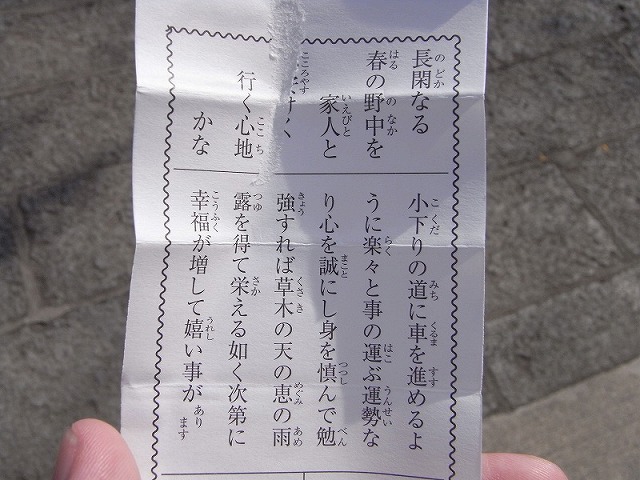 長閑なる
春の野中を
家人と
けく
行く心地
かな
小下りの道に車を進めるよ
うに楽々と事の運ぶ運勢な
り心を誠にし身を慎んで勉
強すれば草木の天の恵の雨
露を得て栄える如く次第に
幸福が増して嬉い事があります